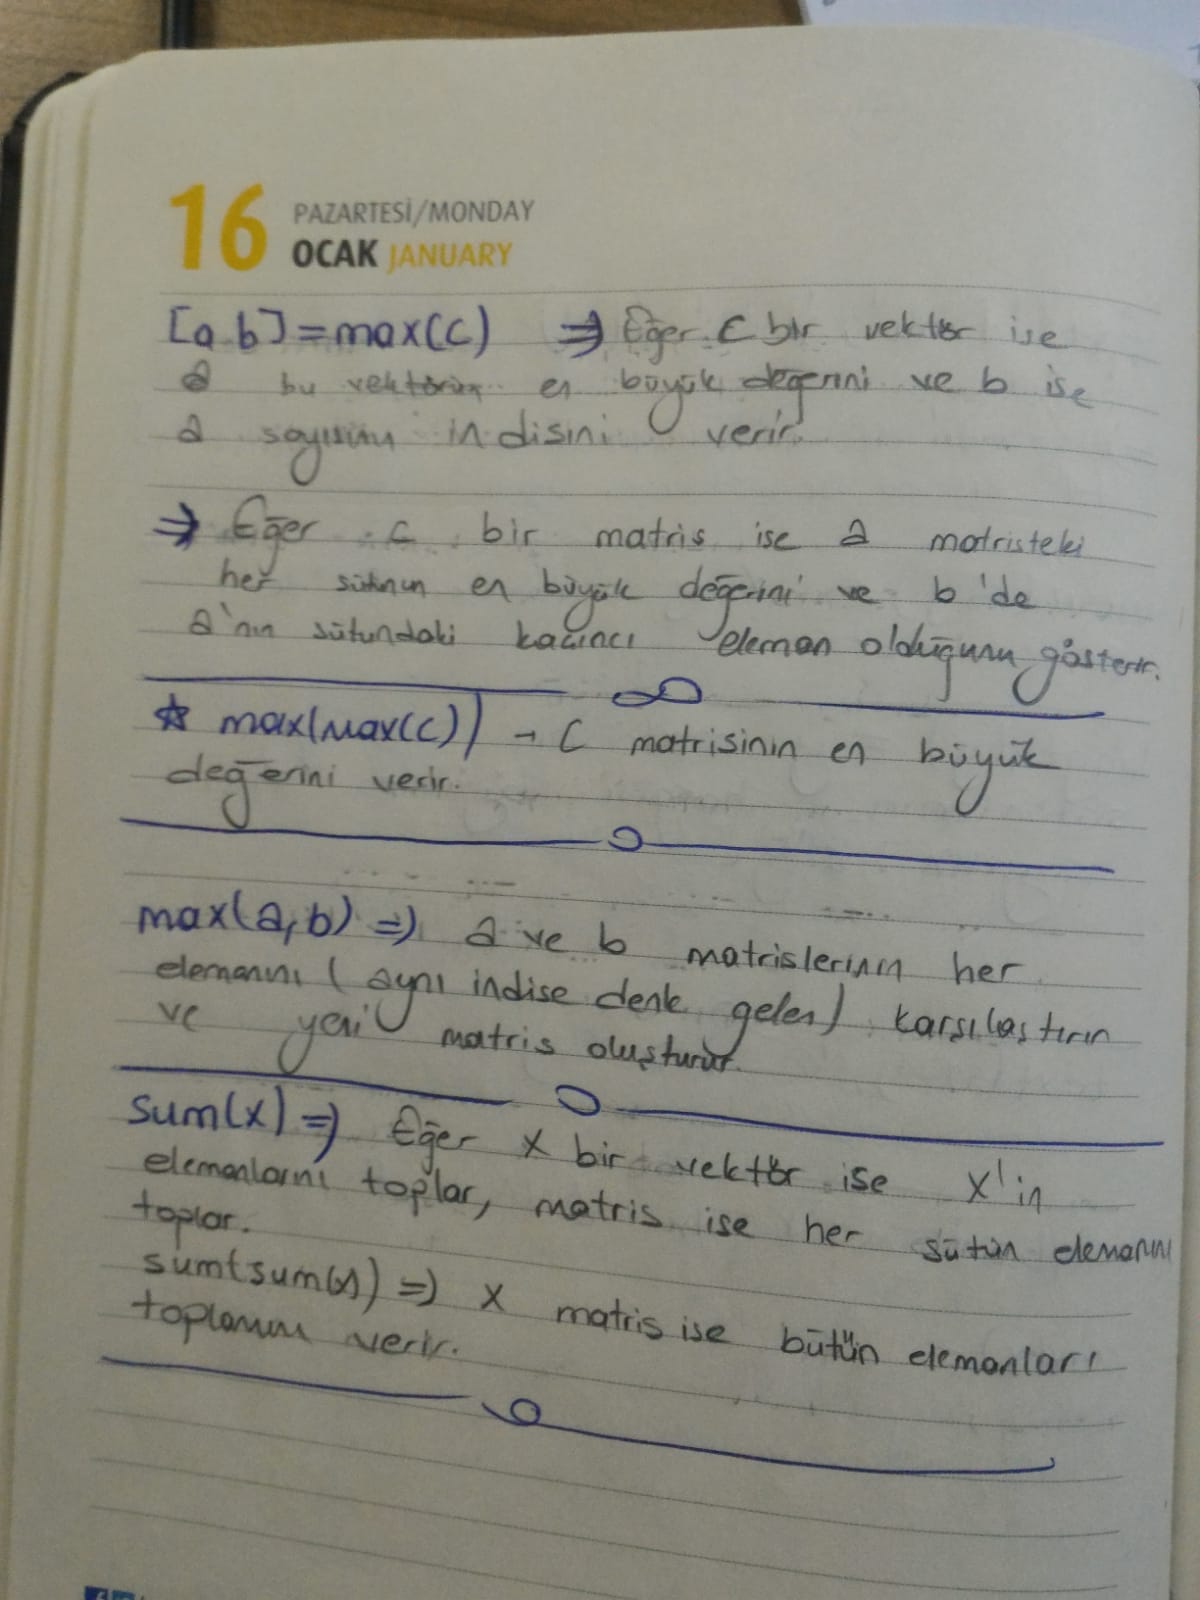 16 PAZARTESİ/MONDAY
OCAK JANUARY
[a b]=max(c) => Eğer C bir vektör ise
a bu vektörün en büyük değerini ve b ise
a sayısının indisini verir.
=> Eğer c bir matris ise a matristeki
her sütunun en büyük değerini ve b'de
a'nın sütundaki kaçıncı eleman olduğunu gösterir.
☆ max(max(c)) → C matrisinin en büyük
değerini verir.
max(a,b) => a ve b matrislerinin her
elemanını (aynı indise denk gelen) karşılaştırın
ve yeni matris oluşturur.
sum(x) => Eğer x bir vektör ise x'in
elemanlarını toplar, matris ise her sütun elemanını
toplar.
sum(sum(x)) => x matris ise bütün elemanları
toplamını verir.